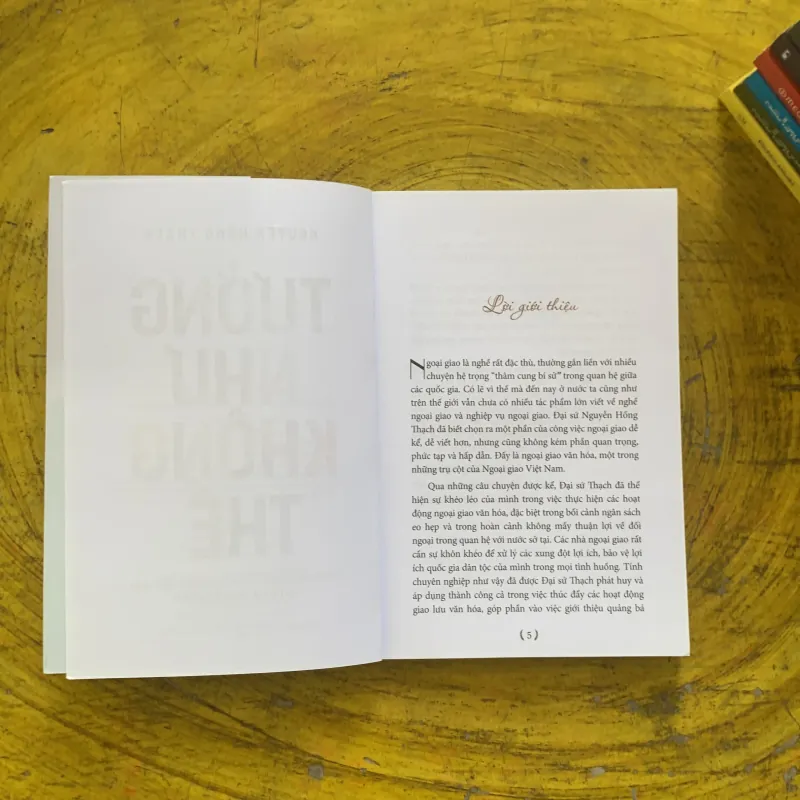 NGUYỄN HỒNG THẠCH
TƯỞNG
NHƯ
KHÔNG
THỂ
Lời giới thiệu
Ngoại giao là nghề rất đặc thù, thường gắn liền với nhiều
chuyện hệ trọng "thâm cung bí sử" trong quan hệ giữa
các quốc gia. Có lẽ vì thế mà đến nay ở nước ta cũng như
trên thế giới vẫn chưa có nhiều tác phẩm lớn viết về nghề
ngoại giao và nghiệp vụ ngoại giao. Đại sứ Nguyễn Hồng
Thạch đã biết chọn ra một phần của công việc ngoại giao dễ
kể, dễ viết hơn, nhưng cũng không kém phần quan trọng,
phức tạp và hấp dẫn. Đấy là ngoại giao văn hóa, một trong
những trụ cột của Ngoại giao Việt Nam.
Qua những câu chuyện được kể, Đại sứ Thạch đã thể
hiện sự khéo léo của mình trong việc thực hiện các hoạt
động ngoại giao văn hóa, đặc biệt trong bối cảnh ngân sách
eo hẹp và trong hoàn cảnh không mấy thuận lợi về đối
ngoại trong quan hệ với nước sở tại. Các nhà ngoại giao rất
cần sự khôn khéo để xử lý các xung đột lợi ích, bảo vệ lợi
ích quốc gia dân tộc của mình trong mọi tình huống. Tính
chuyên nghiệp như vậy đã được Đại sứ Thạch phát huy và
áp dụng thành công cả trong việc thúc đẩy các hoạt động
giao lưu văn hóa, góp phần vào việc giới thiệu quảng bá
(5)